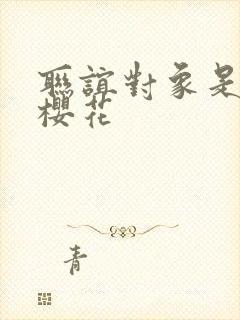 聯誼對象是
櫻花
青